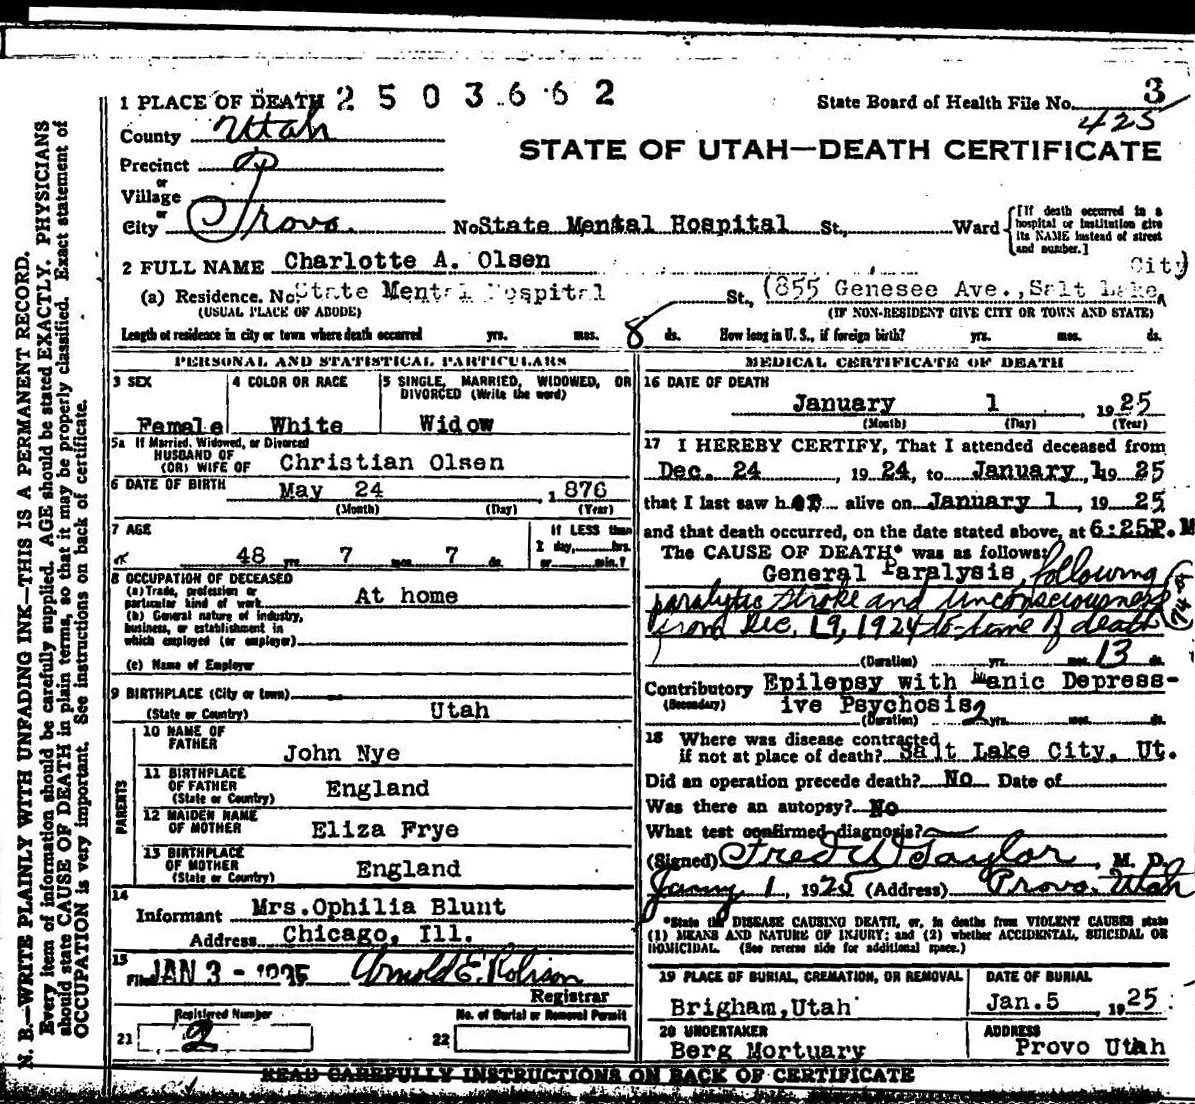 1 PLACE OF DEATH 2 5 0 3 6 6 2
State Board of Health File No. 3
425
County Utah
STATE OF UTAH—DEATH CERTIFICATE
Precinct
or
Village
or
City Provo. No State Mental Hospital St., Ward
[If death occurred in a hospital or institution give its NAME instead of street and number.]
2 FULL NAME Charlotte A. Olsen
(a) Residence. No State Mental Hospital St., (855 Genesee Ave., Salt Lake City)
(USUAL PLACE OF ABODE) (IF NON-RESIDENT GIVE CITY OR TOWN AND STATE)
Length of residence in city or town where death occurred yrs. mos. 8 ds. How long in U. S., if foreign birth? yrs. mos. ds.
PERSONAL AND STATISTICAL PARTICULARS
3 SEX
Female
4 COLOR OR RACE
White
5 SINGLE, MARRIED, WIDOWED, OR
DIVORCED (Write the word)
Widow
5a If Married, Widowed, or Divorced
HUSBAND OF
(OR) WIFE OF Christian Olsen
6 DATE OF BIRTH May 24, 1876
(Month) (Day) (Year)
7 AGE
48 yrs. 7 mos. 7 ds.
If LESS than
1 day, hrs.
or min.?
8 OCCUPATION OF DECEASED
(a) Trade, profession or
particular kind of work At home
(b) General nature of industry,
business, or establishment in
which employed (or employer)
(c) Name of Employer
9 BIRTHPLACE (City or town)
(State or Country) Utah
PARENTS
10 NAME OF
FATHER John Nye
11 BIRTHPLACE
OF FATHER England
(State or Country)
12 MAIDEN NAME
OF MOTHER Eliza Frye
13 BIRTHPLACE
OF MOTHER England
(State or Country)
14
Informant Mrs. Ophilia Blunt
Address Chicago, Ill.
15
Filed JAN 3 - 1925 Arnold E. Robison
Registrar
Registered Number
21 2
No. of Burial or Removal Permit
22
MEDICAL CERTIFICATE OF DEATH
16 DATE OF DEATH
January 1, 1925
(Month) (Day) (Year)
17 I HEREBY CERTIFY, That I attended deceased from
Dec. 24, 1924, to January 1, 1925
that I last saw her alive on January 1, 1925
and that death occurred, on the date stated above, at 6:25P.M
The CAUSE OF DEATH* was as follows:
General Paralysis, following
paralytic stroke and unconsciousness
from Dec. 19, 1924 to time of death
(Duration) yrs. mos. 13 ds.
Contributory Epilepsy with Manic Depress-
(Secondary) ive Psychosis
(Duration) 2 yrs. mos. ds.
18 Where was disease contracted
if not at place of death? Salt Lake City, Ut.
Did an operation precede death? No Date of
Was there an autopsy? No
What test confirmed diagnosis?
(Signed) Fred W Taylor, M. D.
Jany. 1, 1925 (Address) Provo. Utah
*State the DISEASE CAUSING DEATH, or, in deaths from VIOLENT CAUSES state
(1) MEANS AND NATURE OF INJURY; and (2) whether ACCIDENTAL, SUICIDAL OR
HOMICIDAL. (See reverse side for additional space.)
19 PLACE OF BURIAL, CREMATION, OR REMOVAL
Brigham, Utah
DATE OF BURIAL
Jan. 5 1925
20 UNDERTAKER
Berg Mortuary
ADDRESS
Provo Utah
READ CAREFULLY INSTRUCTIONS ON BACK OF CERTIFICATE
N. B.—WRITE PLAINLY WITH UNFADING INK—THIS IS A PERMANENT RECORD.
Every item of information should be carefully supplied. AGE should be stated EXACTLY. PHYSICIANS
should state CAUSE OF DEATH in plain terms, so that it may be properly classified. Exact statement of
OCCUPATION is very important. See instructions on back of certificate.